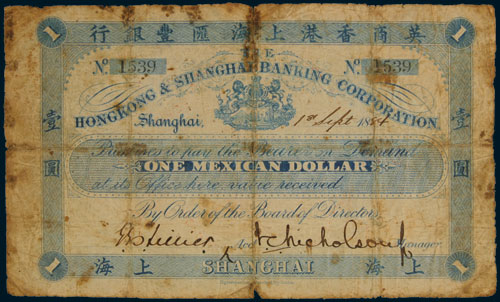 1 英商香港上海匯豐銀行 1
THE
No. 1539 No. 1539
HONGKONG & SHANGHAI BANKING CORPORATION
Shanghai, 1st Sept 18
壹圓 壹圓
Promises to pay the Bearer on Demand
ONE MEXICAN DOLLAR
at its Office here, value received
By Order of the Board of Directors,
Hillier Nicholson Manager.
1 上海 SHANGHAI 上海 1